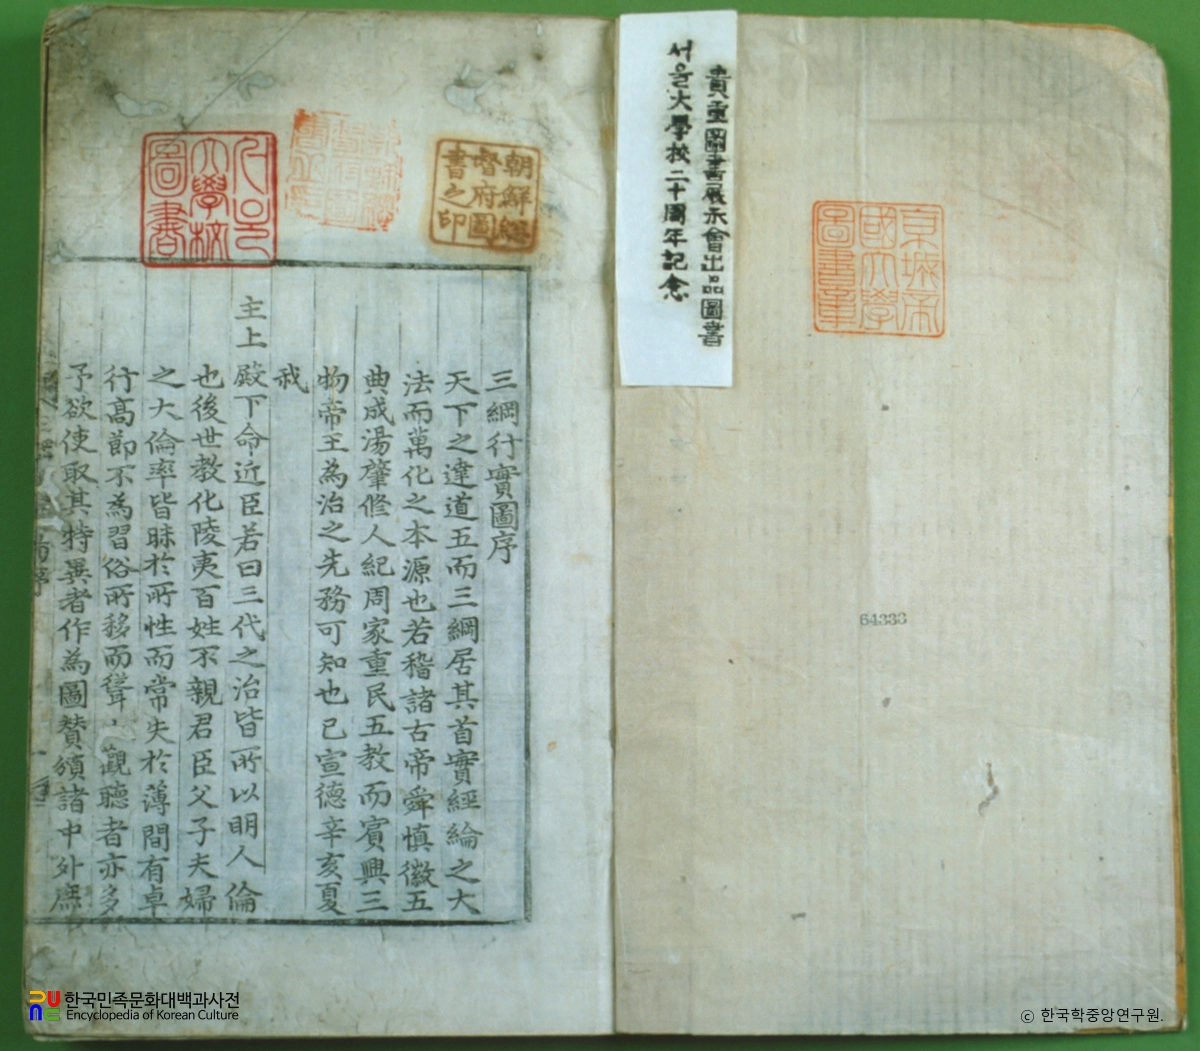 貴重圖書展示會出品圖書
서울大學校二十周年記念
京城帝
國大學
圖書章
64333
朝鮮總
督府圖
書之印
서울
大學校
圖書
三綱行實圖序
天下之達道五而三綱居其首實經綸之大
法而萬化之本源也若稽諸古帝舜慎徽五
典成湯肇修人紀周家重民五教而賓興三
物帝王為治之先務可知也已宣德辛亥夏
我
主上殿下命近臣若曰三代之治皆所以明人倫
也後世教化陵夷百姓不親君臣父子夫婦
之大倫率皆昧於所性而常失於薄間有卓
行高節不為習俗所移而聳觀聽者亦多
予欲使取其特異者作為圖贊頒諸中外庶
한국민족문화대백과사전
Encyclopedia of Korean Culture
ⓒ 한국학중앙연구원.